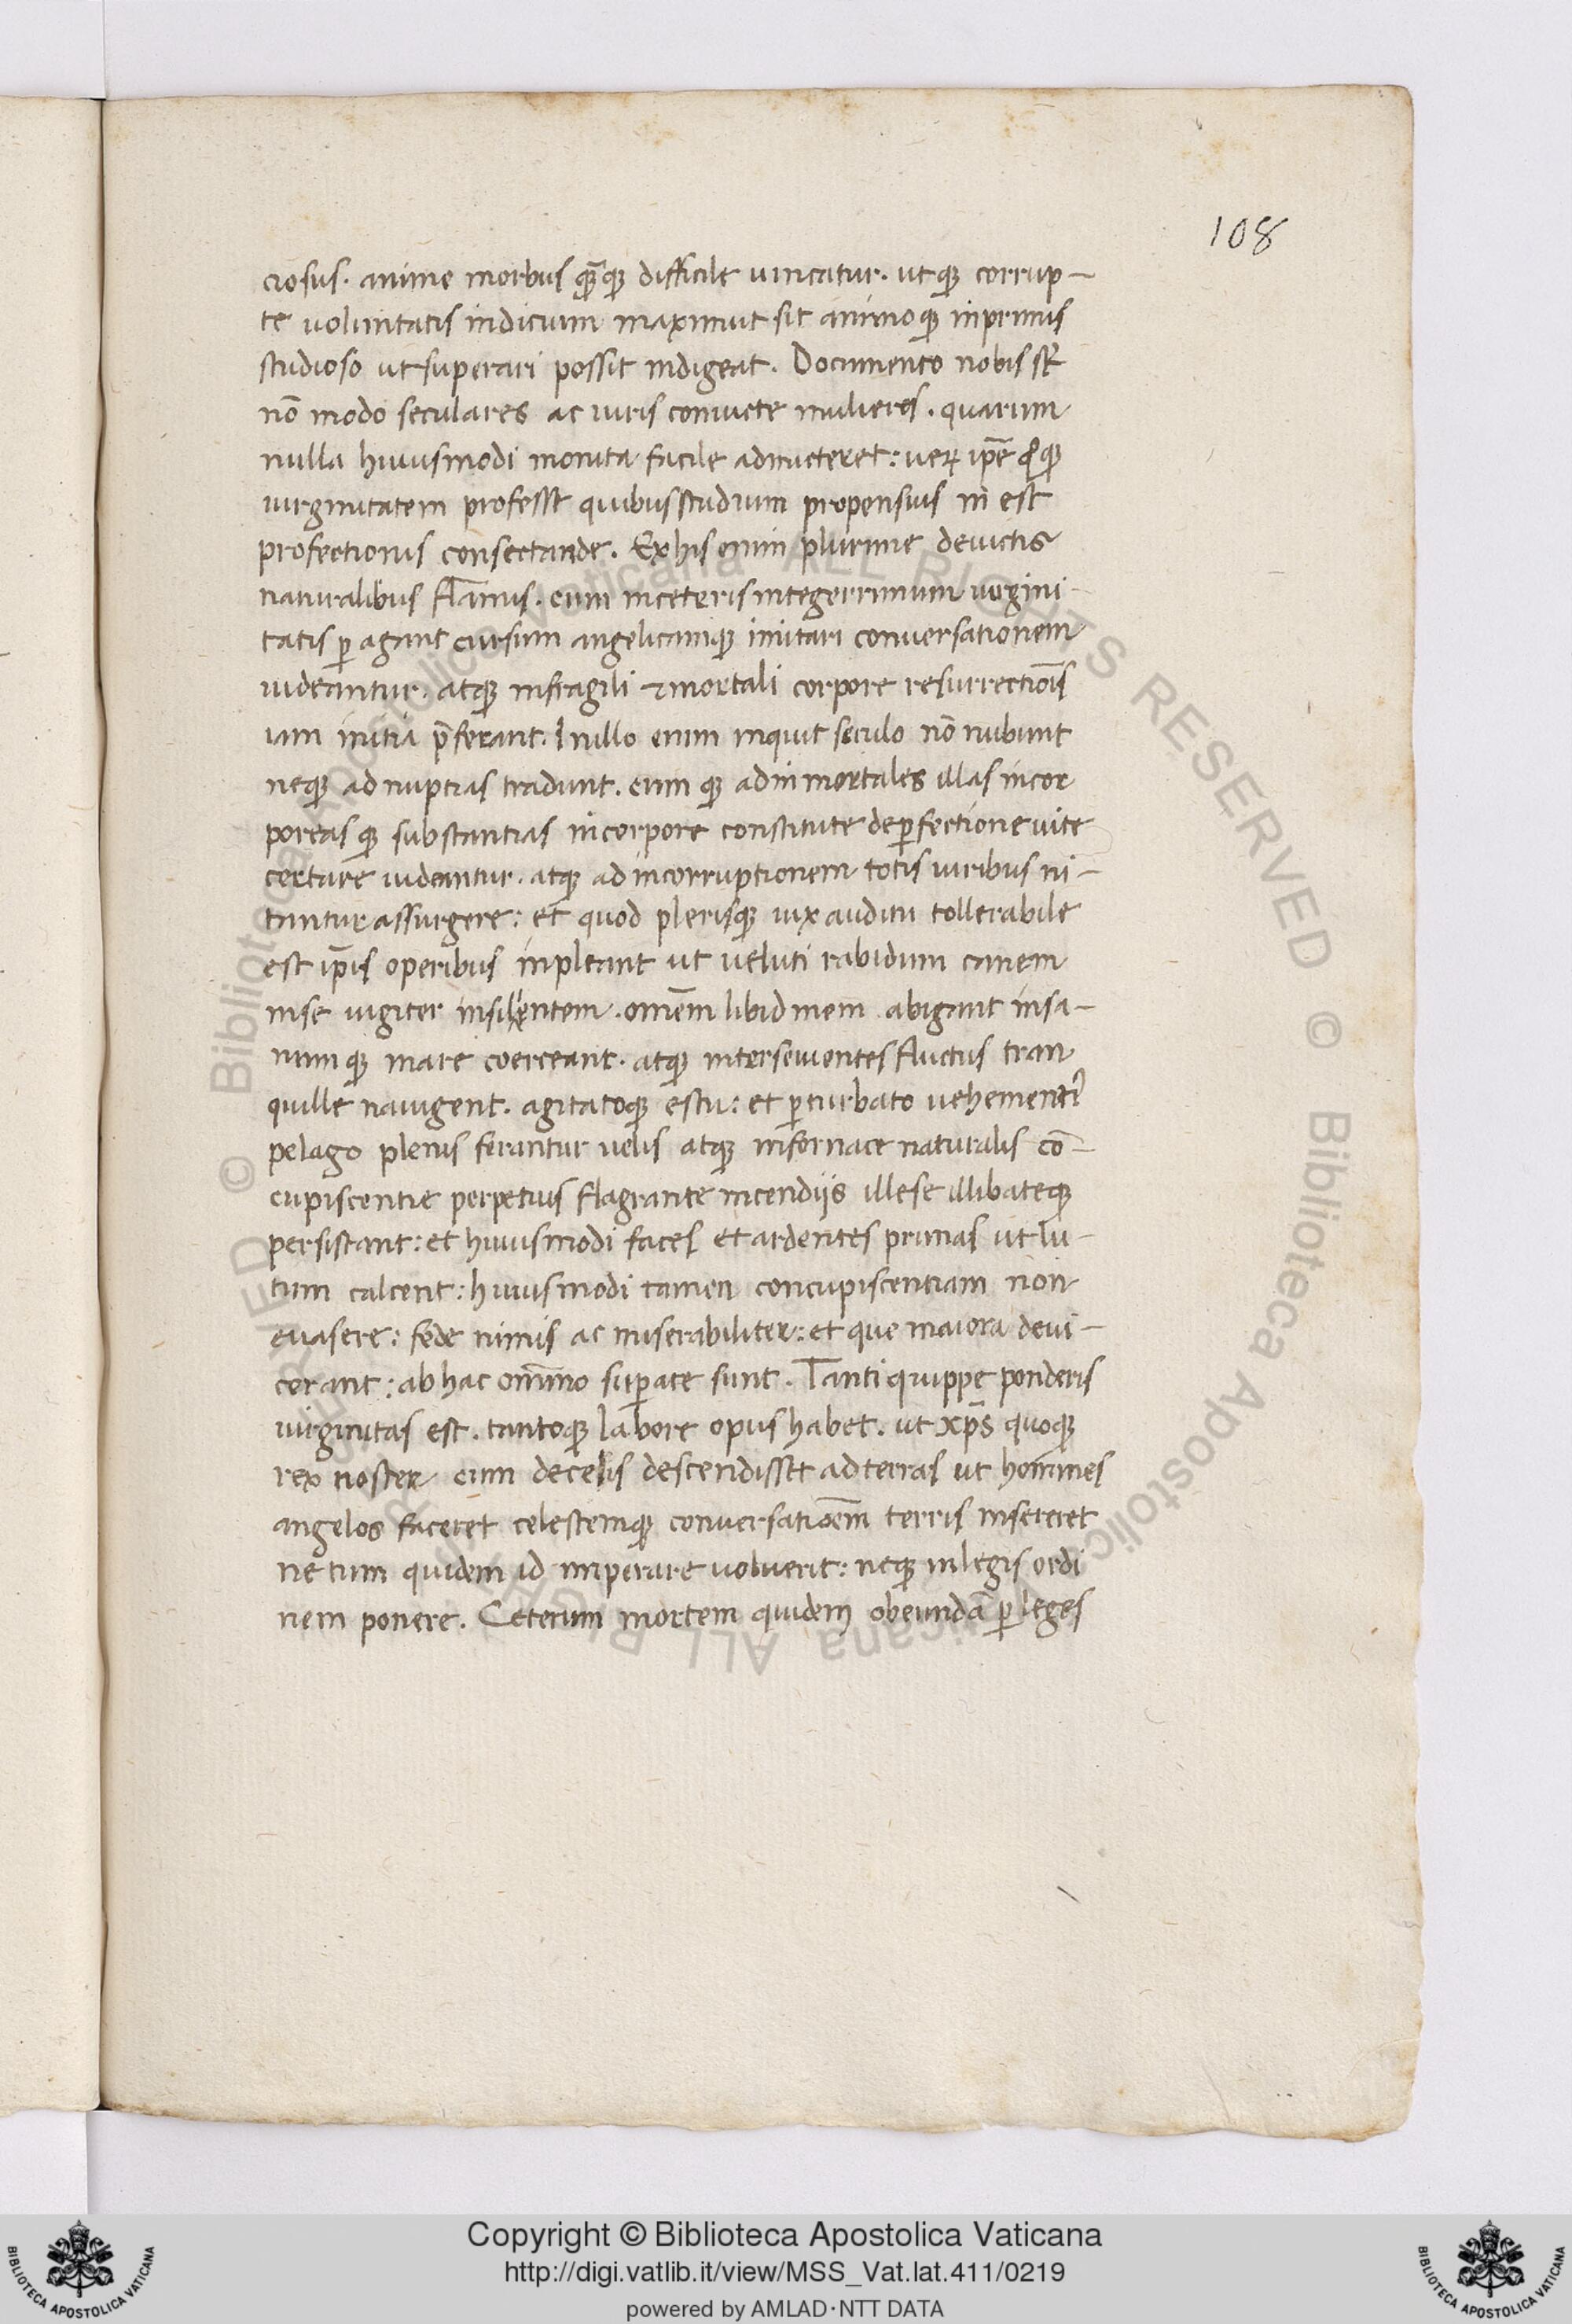 108
ciosus. anime morbus qm̃q; difficile uincatur. utq; corrup-
te uoluntatis indicium maximut sit animoq; inprimis
studioso ut superari possit indigeat. Documento nobis st̃
nõ modo seculares ac uiris coniucte mulieres. quarum
nulla huiusmodi monita facile admicteret: uerꝝ ip̃e q̊q;
uirginitatem professe quibus studium propensius in est
profectionis consectande. Ex his enim plurime deuictis
naturalibus flãmis. cum in ceteris integerrimum uirgini-
tatis ꝑ agant cursum angelicamq; imitari conuersationem
uideantur. atq; in fragili ⁊ mortali corpore resurrectiõis
iam initia p̃ferant. In illo enim inquit seculo nõ nubunt
neq; ad nuptias tradunt. cum q; ad inmortales illas incor
poreas q; substantias in corpore constitute de ꝑfectione uite
certare uideantur. atq; ad incorruptionem totis uiribus ni-
tantur assurgere: et quod plerisq; uix auditu tollerabile
est ip̃is operibus inpleant ut ueluti rabidum canem
in se iugiter insilientem. omẽm libidinem abigant insa-
num q; mare coerceant. atq; inter seuientes fluctus tran
quille nauigent. agitatoq; estu: et ꝑturbato uehementi᷑
pelago plenis ferantur uelis atq; in fornace naturalis cõ-
cupiscentie perpetuis flagrante incendijs illese illibateq;
persistant: et huiusmodi faces et ardentes prunas ut lu-
tum calcent: huiusmodi tamen concupiscentiam non
euasere: fede nimis ac miserabiliter: et que maiora deui-
cerant: ab hac omĩno suꝑate sunt. Tanti quippe ponderis
uirginitas est. tantoq; labore opus habet. ut xp̃s quoq;
rex noster cum de celis descendisset ad terras ut homines
angelos faceret celestemq; conuersatiõem terris insereret
ne tum quidem id imperare uoluerit: neq; in legis ordi
nem ponere. Ceterum mortem quidem obeundã ꝑ leges
© Biblioteca Apostolica Vaticana ALL RIGHTS RESERVED © Biblioteca Apostolica Vaticana ALL RIGHTS RESERVED
Copyright © Biblioteca Apostolica Vaticana
http://digi.vatlib.it/view/MSS_Vat.lat.411/0219
powered by AMLAD·NTT DATA
BIBLIOTECA APOSTOLICA VATICANA
BIBLIOTECA APOSTOLICA VATICANA